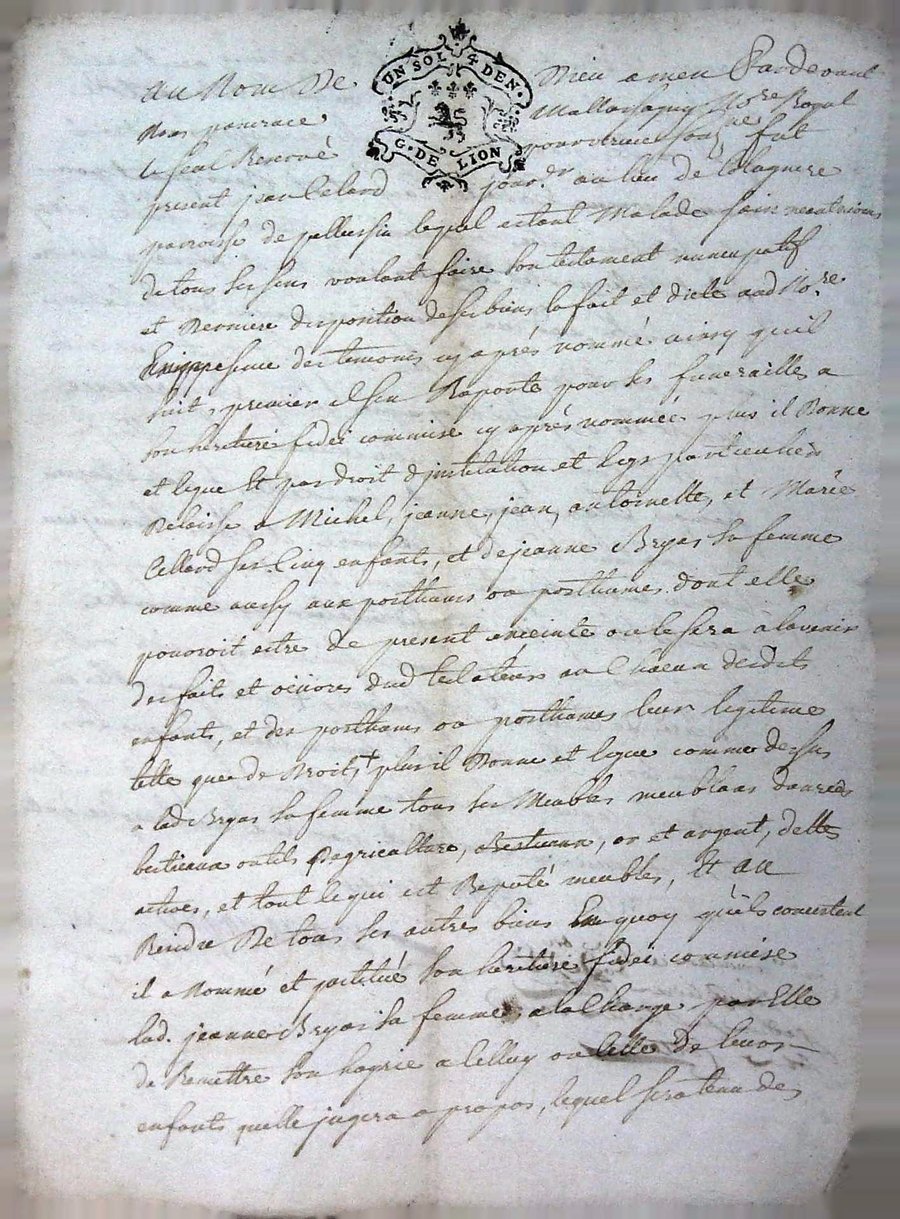 UN SOL 4 DEN.
G. DE LION
au Nom De Dieu amen Pardevant
Nous pancrace No.re Royal
le seal Renové soub.ne fut
present jean Celard jour.er au lieu de
parroisse de pellussin lequel estant Malade sain neantmoins
de tous ses sens voulant faire son testament nuncupatif
et Derniere disposition de ses biens la fait et dicté aud No.re
En presence des temoins cy aprés nommé ainsy quil
suit, premier il sen Raporte pour ses funeraille a
son heritiere fidei commise cy aprés nommée plus il Donne
et legue Et par droit d'jnstitution et legs particulieds
Delaisse a Michel, jeanne, jean, antoinette, et Marie
Cellard ses Cinq enfants, et de jeanne Bryas sa femme
comme aussy aux posthumes ou posthumes dont elle
pouroit estre de present enceinte ou le sera a lavenir
des faits et oeuvres dud testateur au Chacun desdits
enfants, et des posthumes ou posthumes leur legitime
telle que de Droits + plus il Donne et legue comme dessus
a lad Bryas sa femme tous ses Meubles meublans danrées
bestieaux outils Dagriculture, Bestieaux, or et argent, dettes
actives, et tout le qui est Reputé meubles, Et au
Residu De tous ses autres biens En quoy quils concistent
il a Nommé et jnstitué son heritiere fidei commise
lad. jeanne Bryas sa femme, a la Charge par Elle
de Remettre son hoyrie a celluy ou celle De leurs
enfants quelle jugera a propos, lequel sera tenu de